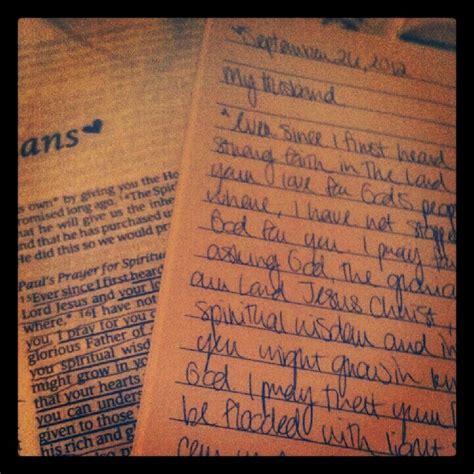 ans♥
s own* by giving you the Ho
romised long ago. ¹⁴*The Spir
at he will give us the inher
nd that he has purchased u
He did this so we would pr
Paul's Prayer for Spiritu
¹⁵Ever since I first heard
Lord Jesus and your lo
where,* ¹⁶I have not
you, I pray for you c
glorious Father of
you spiritual wisd
might grow in yo
that your hearts
you can unders
given to those
his rich and g
*September 26, 2012
My Husband
*Ever since I first heard
strong faith in the Lord
your love for God's peop
where, I have not stopp
God for you I pray
asking God, the
our Lord Jesus Christ
spiritual wisdom and in
you might grow in
God I pray that your
be flooded with light